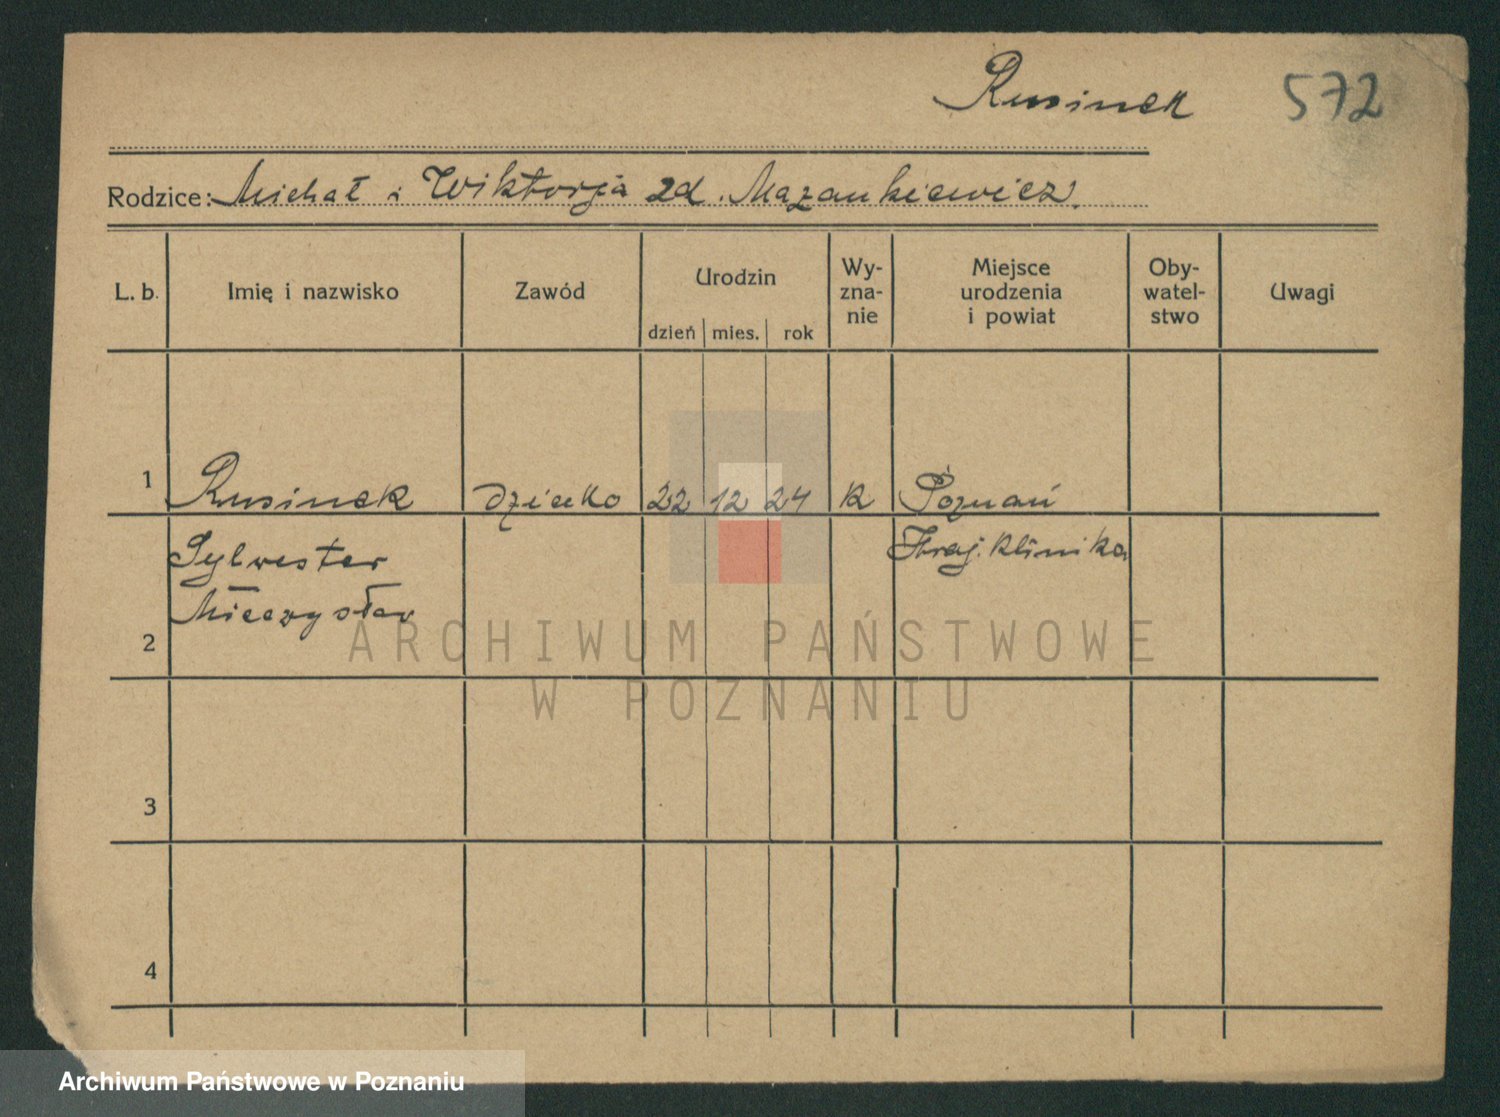 Rusinek 572
Rodzice: Michał i Wiktorja zd. Mazankiewicz.
L. b. Imię i nazwisko Zawód Urodzin Wy-zna-nie Miejsce urodzenia i powiat Oby-watel-stwo Uwagi
dzień mies. rok
1 Rusinek dziecko 22 12 24 k Poznań
Sylwester Kraj. klinika
Mieczysław
2
ARCHIWUM PAŃSTWOWE
W POZNANIU
3
4
Archiwum Państwowe w Poznaniu